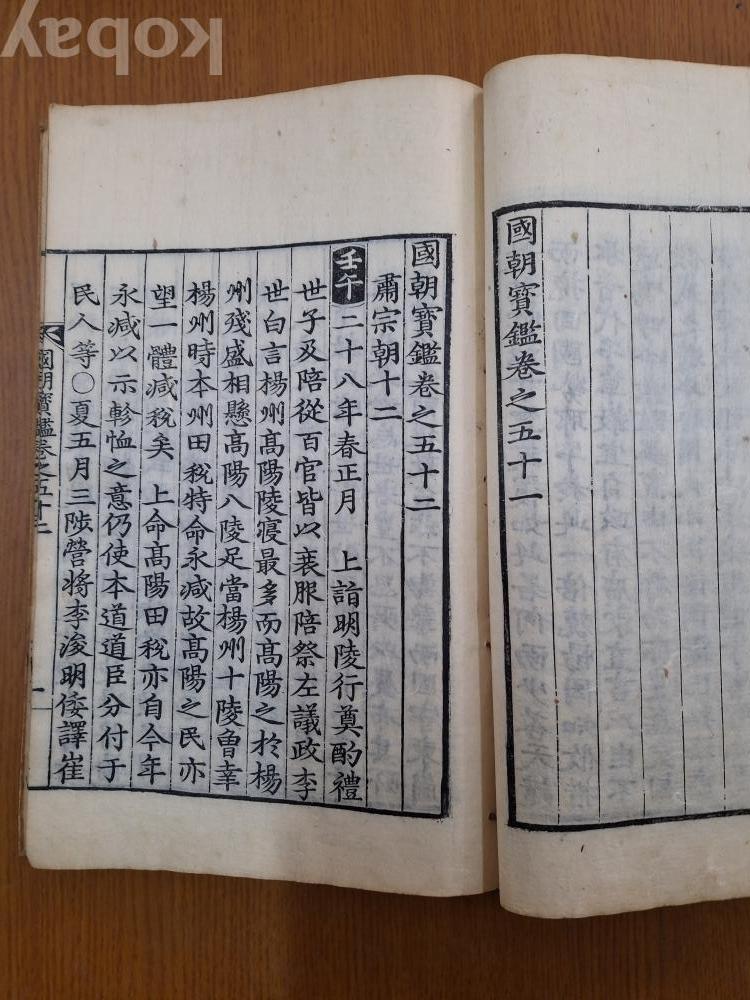 kobay
國朝寶鑑卷之五十一
國朝寶鑑卷之五十二
肅宗朝十二
壬午二十八年春正月 上詣明陵行奠酌禮
世子及陪從百官皆以衰服陪祭左議政李
世白言楊州髙陽陵寢最多而髙陽之於楊
州殘盛相懸髙陽八陵足當楊州十陵魯幸
楊州時本州田稅特命永减故髙陽之民亦
望一體减稅矣 上命髙陽田稅亦自今年
永减以示軫恤之意仍使本道道臣分付于
民人等○夏五月三陟營將李浚明倭譯崔
國朝寶鑑卷之五十二
一